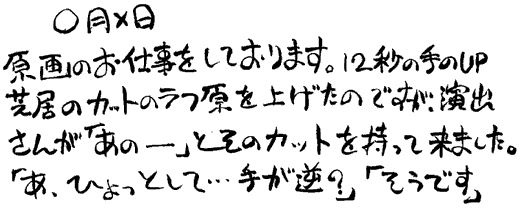 〇月×日
原画のお仕事をしております。12秒の手のUP
芝居のカットのラフ原を上げたのですが、演出
さんが「あのー」とそのカットを持って来ました。
「あ、ひょっとして…手が逆?」「そうです」